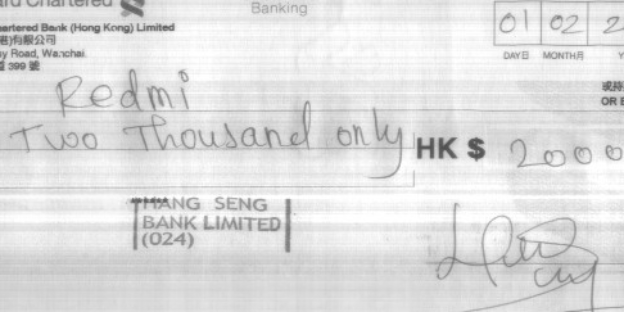 Chartered
Banking
artered Bank (Hong Kong) Limited
港)有限公司
y Road, Wanchai
399 號
01 02 2
DAY日 MONTH月 Y
或持
OR B
Redmi
Two Thousand only HK $ 2000
HANG SENG
BANK LIMITED
(024)